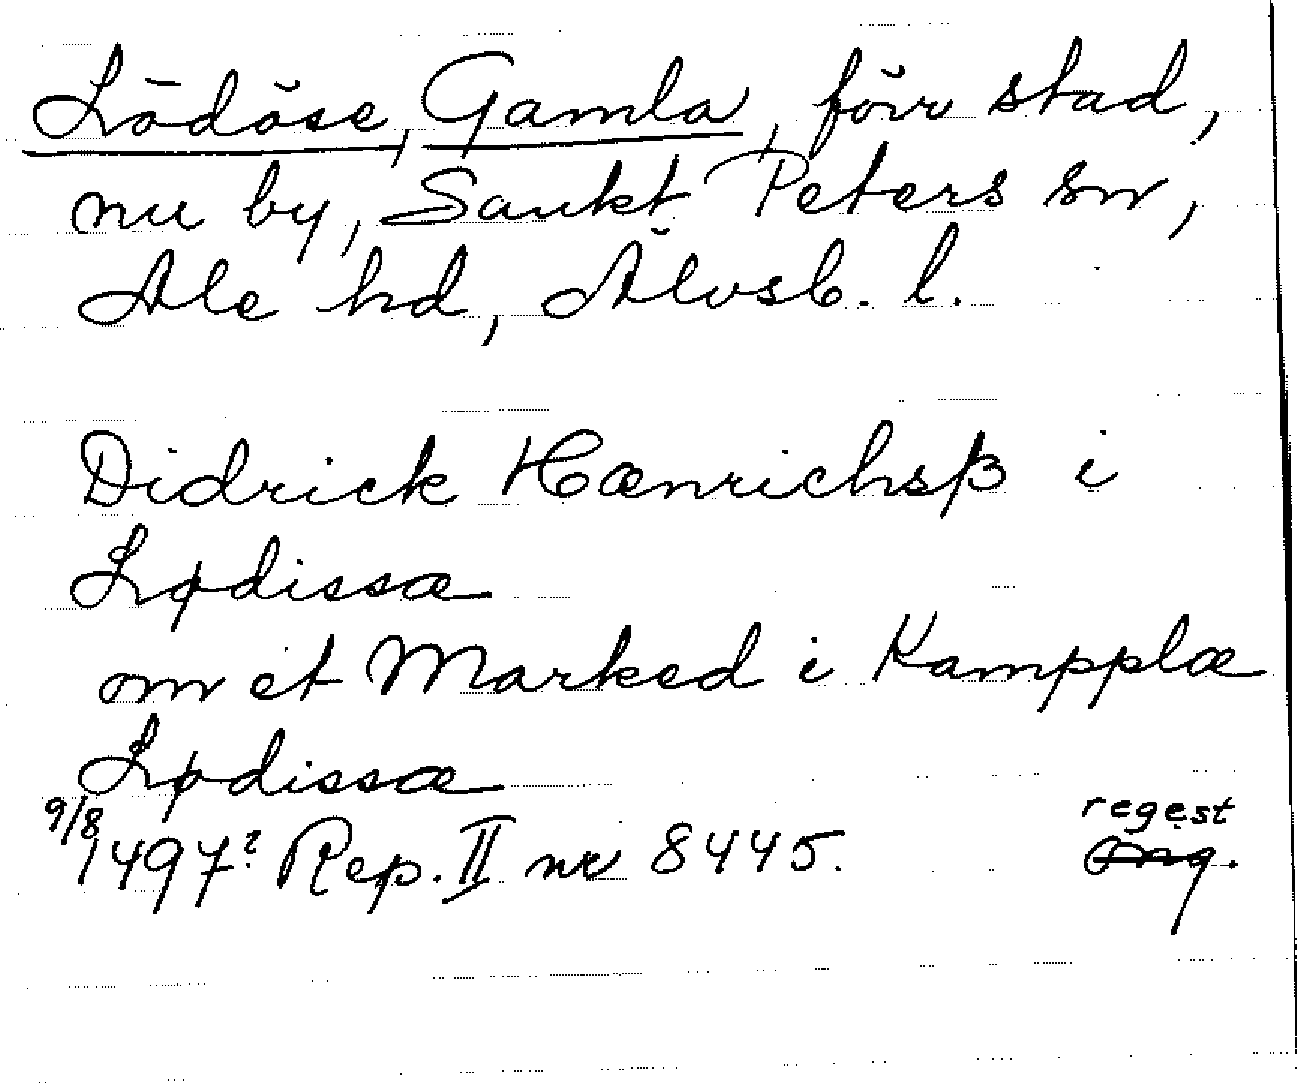 Lödöse, Gamla, förr stad,
nu by, Sankt Peters sn,
Ale hd, Älvsb. l.
Didrick Hænrichsβ i
Lødissæ
om et Marked i Kampplæ
Lødissæ
9/8 1497? Rep. II nr 8445. regest